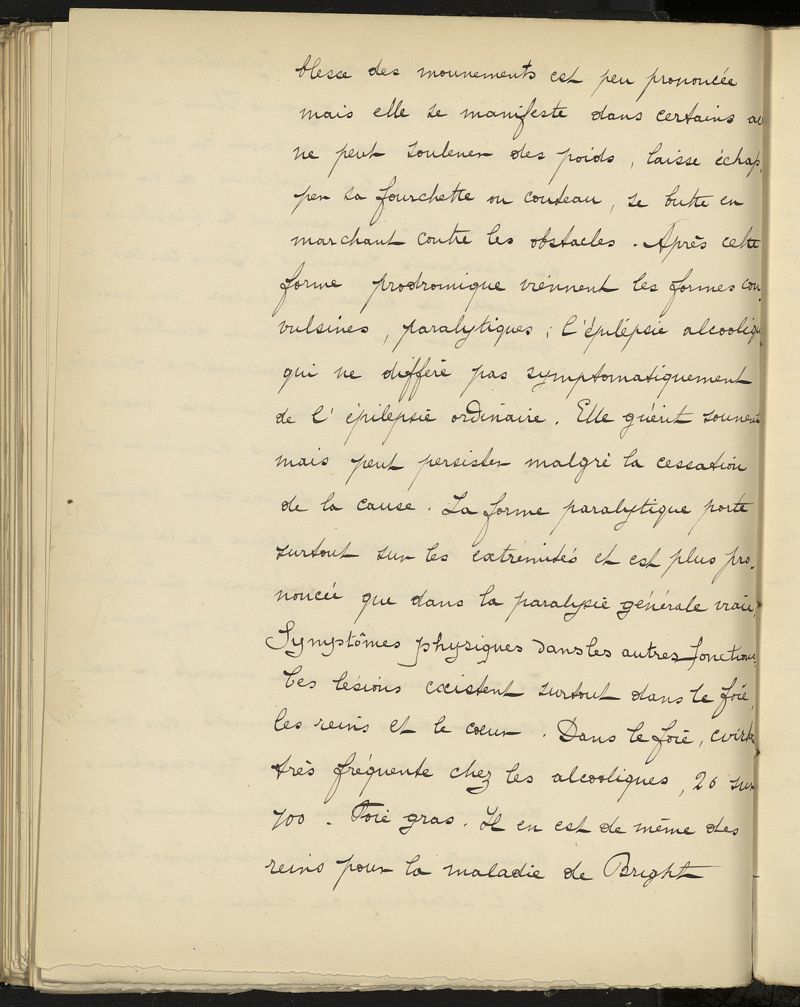 blesse des mouvements est peu prononcée
mais elle se manifeste dans certains
ne peut soulever des poids, laisse échap-
per sa fourchette ou couteau, se butte en
marchant contre les obstacles. Après cette
forme prodromique viennent les formes con-
vulsives, paralytiques ; l'épilepsie alcooliq
qui ne diffère pas symptomatiquement
de l'épilepsie ordinaire. Elle guérit souvent
mais peut persister malgré la cessation
de la cause. La forme paralytique porte
surtout sur les extrémités et est plus pro-
noncée que dans la paralysie générale vraie.
Symptômes physiques dans les autres fonctions.
Les lésions existent surtout dans le foie,
les reins et le cœur. Dans le foie,
très fréquente chez les alcooliques, 20 sur
100. Foie gras. Il en est de même des
reins pour la maladie de Bright